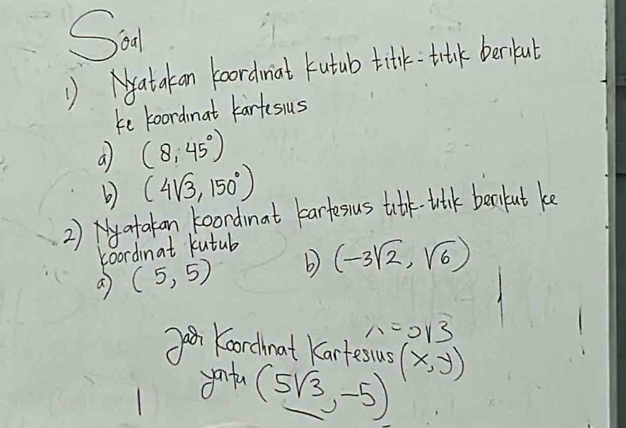 Soal
1) Nyatakan koordinat kutub titik-titik berikut
ke koordinat kartesius
a) (8, 45°)
b) (4√3, 150°)
2) Nyatakan koordinat kartesius titik-titik berikut ke
koordinat kutub
a) (5, 5) b) (-3√2, √6)
Jadi Koordinat Kartesius (x,y)
yaitu (5√3, -5)